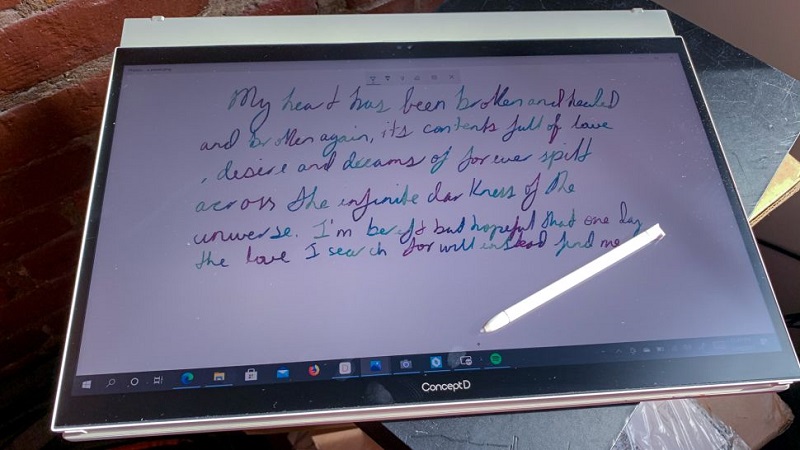 My heart has been broken and healed
and broken again, it's contents full of love
, desire and dreams of forever spilt
across the infinite darkness of the
universe. I'm bereft but hopeful that one day
the love I search for will instead find me
ConceptD